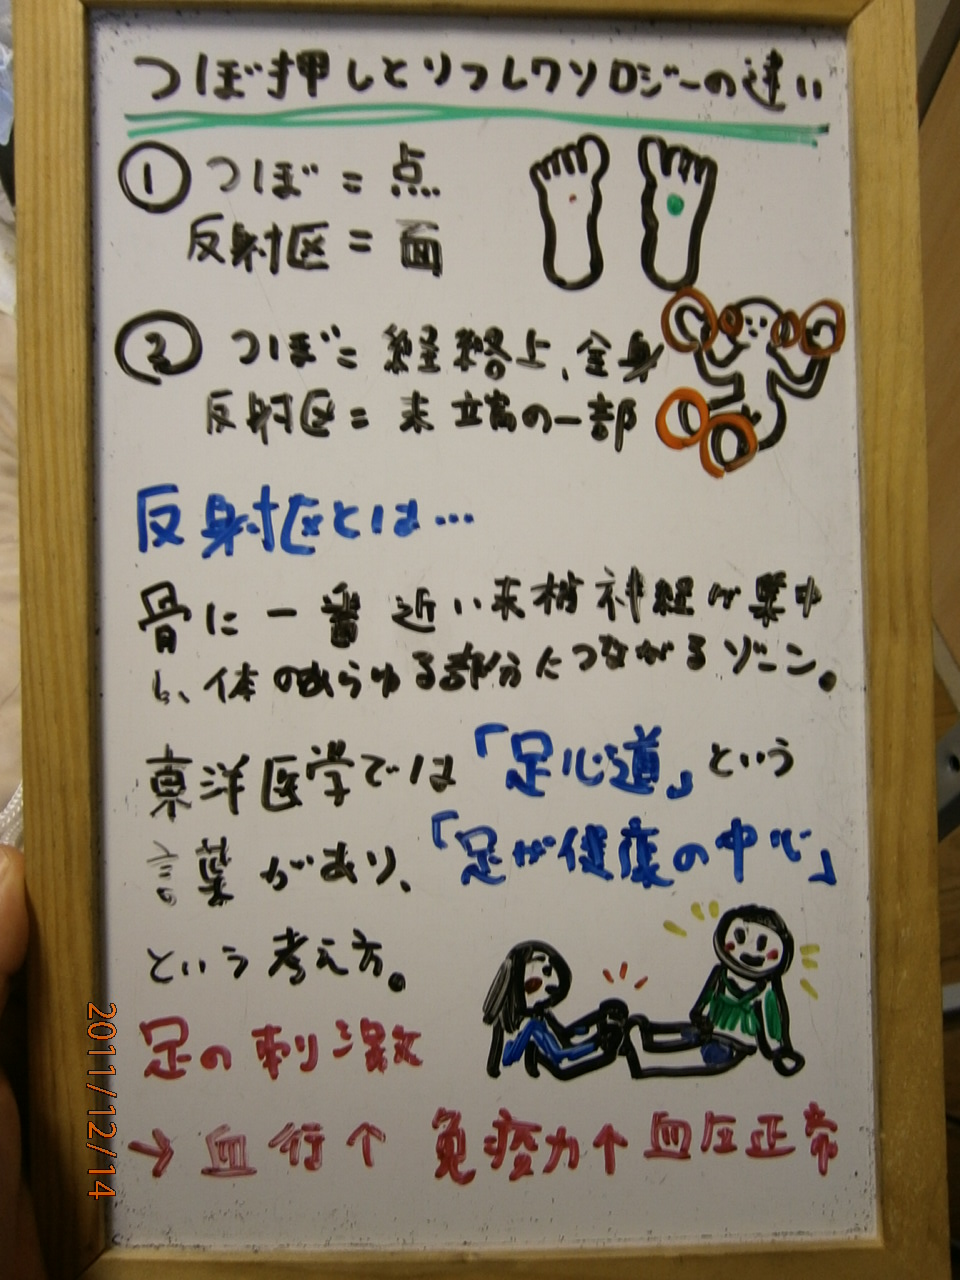 つぼ押しとリフレクソロジーの違い
① つぼ = 点
反射区 = 面
② つぼ = 経絡上、全身
反射区 = 末端の一部
反射区とは…
骨に一番近い末梢神経が集中
し、体のあらゆる部分につながるゾーン。
東洋医学では「足心道」という
言葉があり、「足が健康の中心」
という考え方。
足の刺激
→ 血行↑ 免疫力↑ 血圧正常
2011/12/14